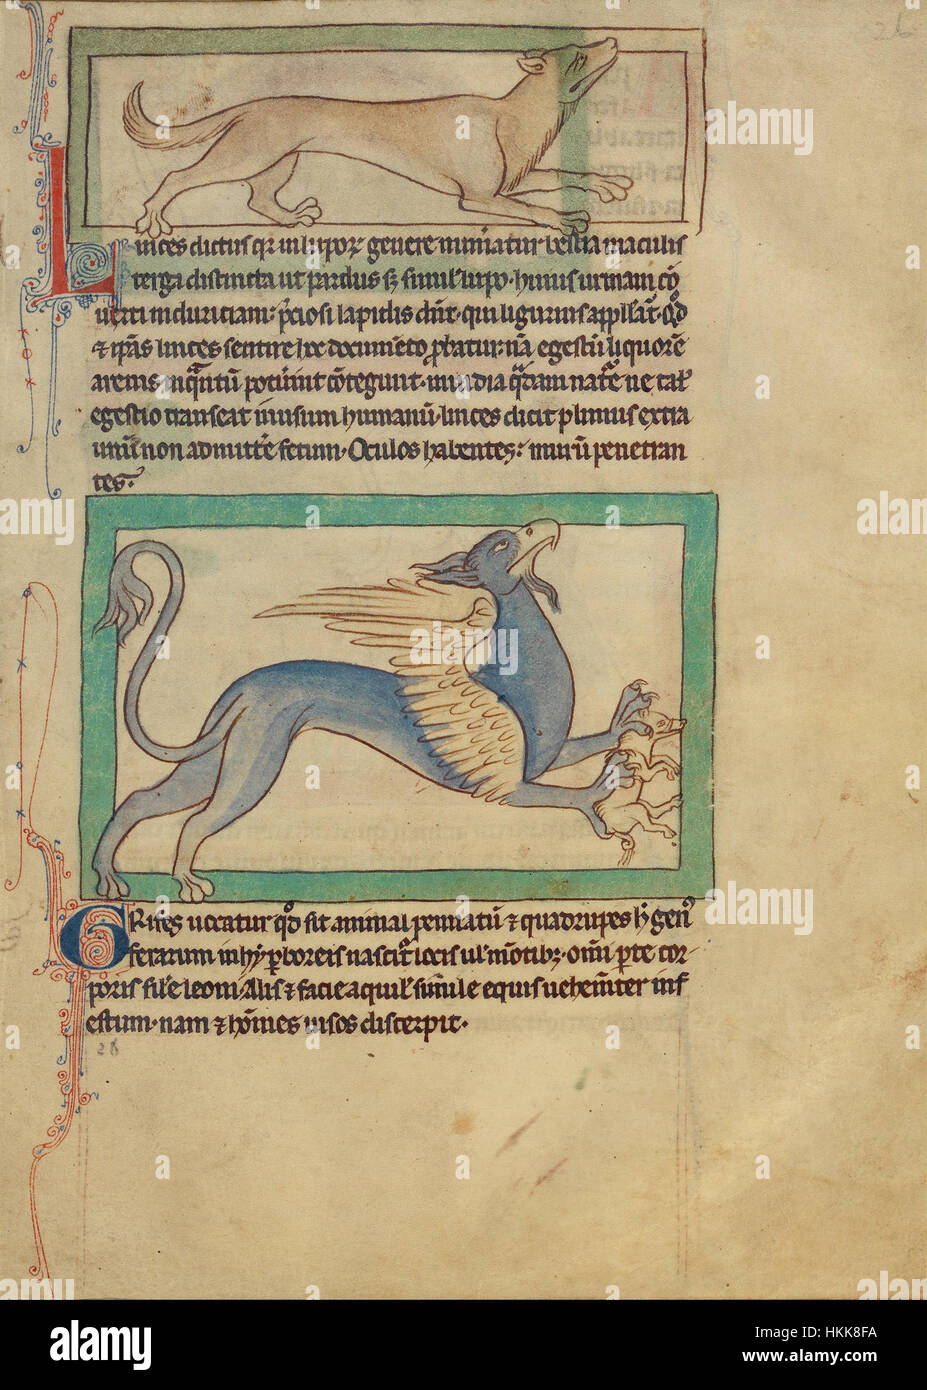 26
Linces dictus qr in luporꝫ genere nūiatur· bestia maculis
terga distincta ut pardus sꝫ simul' lupo· huius urinam cō
uerti in duriciam p̄ciosi lapidis dn̄t· qui ligurius appll'at᷑· qd̄
& ip̄as linces sentire hoc documēto p̄batur: nā egestū liquorē
arenis inq̄ntū potūint cōtegunt· inuidia q̄dam nat᷑e ne tal'
egestio transeat in usum humanū· linces dicit plinius extra
unū non admitte᷑ fetum· Oculos habentes: murū penetran
tes·
GRifes uocatur qd̄ sit animal pennatū & quadrupes h̄ gen᷒
ferarum in hyp̄boreis nascit᷑ locis ul' mōtibꝫ· om̄i p̄te cor
poris fil'e leoni· Alis & facie aquil' simile equis uehemīter inf
estum· nam & hōines uisos discerpit·
26
alamy
Image ID: HKK8FA
www.alamy.com